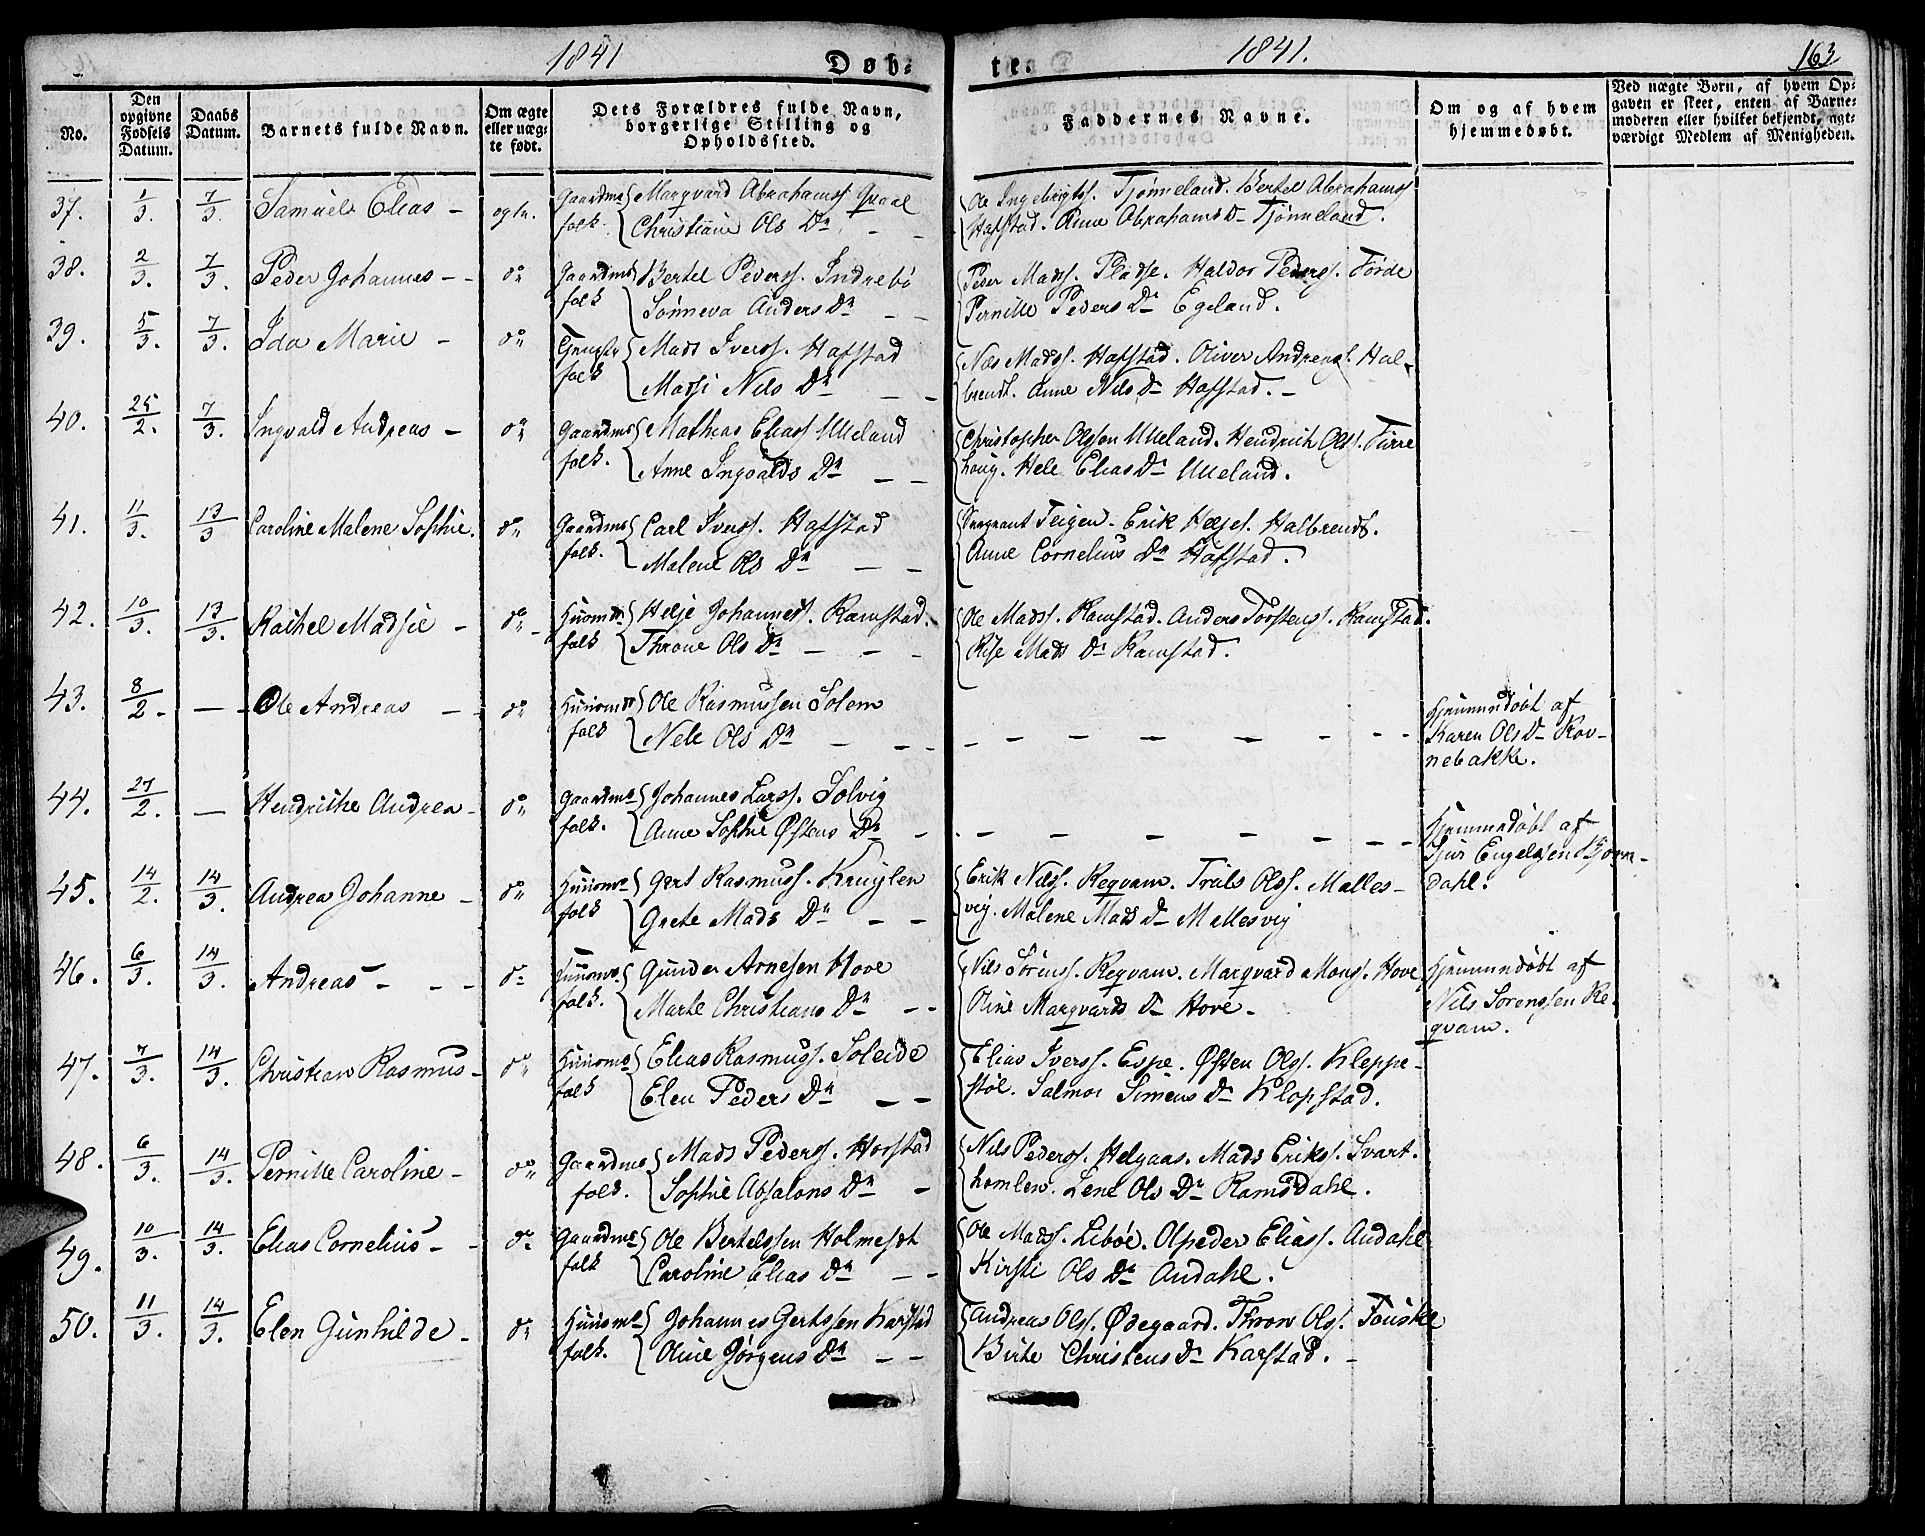 1841
Døb-
te.
1841.
163
No.
Den opgivne Fødsels Datum.
Daabs Datum.
Barnets fulde Navn.
Om ægte eller uægte født.
Dets Forældres fulde Navn, borgerlige Stilling og Opholdssted.
Faddernes Navne.
Om og af hvem hjemmedøbt.
Ved uægte Børn, af hvem Opgaven er skeet, enten af Barnemoderen eller hvilket bekjendt, agtværdigt Medlem af Menigheden.
37. 1/3. 7/3. Samuel Elias - ægte. Gaardms {Marqvard Abrahamss. Qvaal
folk. {Christiane Ols Dr. - -
{Ole Ingebrigtss. Tjønneland. Bertel Abrahamss
Hafstad. Anne Abrahams Dr Tjønneland.
38. 2/3. 7/3. Peder Johannes - - do Gaardms {Bertel Pederss. Indrebø
folk {Sønneva Anders Dr - -
{Peder Madss. Pladse. Haldor Pederss. Førde
Pernille Peders Dr Egeland.
39. 5/3. 7/3. Ida Marie - do
folk {Mads Iverss. Hafstad
{Massi Nils Dr - -
{Mads. Hafstad. Oliver Andreass. Hal-
brendt. Anne Nils Dr Hafstad. -
40. 25/2. 7/3. Ingvald Andreas - do Gaardms {Mathias Eliass Ulleland
folk. {Anne Ingvalds Dr - -
{Christopher Olssen Ulleland. Hendrich Olss. Firre
houg. Hele Elias Dr Ulleland.
41. 11/3. 13/3 Caroline Malene Sophie. do Gaardms {Carl Iverss. Hafstad
folk. {Malene Ols Dr - -
{Sergeant Teigen. Erik Helgel. Halbrendt.
Anne Cornelius Dr Hafstad.
42. 10/3. 13/3. Rachel Madsie - do - Huusm {Helje Johanness. Ramstad.
folk {Throne Ols Dr - - -
{Ole Madss. Ramstad. Anders Torstenss. Ramstad.
Mads Dr Ramstad.
43. 8/2. - Ole Andreas - do Huusm {Ole Rasmussen Solem
folk {Nele Ols Dr - - -
- - - - - - - -
Hjemmedøbt af
Karen Ols Dr Rov-
nebakke.
44. 27/2. - Hendrikke Andrea - do Gaardms {Johannes Larss. Solvig
folk. {Anne Sophie Østens Dr -
- - - - - - -
Hjemmedøbt af
Sjur Engelsen
dahl.
45. 14/2. 14/3. Andrea Johanne - do Huusms {Gert Rasmuss.
folk {Grete Mads Dr - -
{Erik Nilss. Reqvam. Truls Olss. Malles-
vig. Malene Mads Dr Mallesvig
46. 6/3. 14/3. Andreas - - - do Huusms {Gunder Arnesen Hove
folk. {Marte Christians Dr - -
{Nils Sørenss. Reqvam. Marqvard Monss. Hove
Oline Marqvards Dr Hove -
Hjemmedøbt af
Nils Sørenssen Re-
qvam.
47. 7/3. 14/3. Christian Rasmus - do Huusms {Elias Rasmuss. Soleide
folk {Elen Peders Dr - -
{Elias Iverss. Espe. Østen Olss. Kleppe-
støl. Salmoi Simens Dr Klopstad.
48. 6/3. 14/3. Pernille Caroline - do Gaardms {Mads Pederss. Horstad
folk. {Sophie Absalons Dr -
{Nils Pederss. Helgaas. Mads Erikss. Svart-
homlen. Lene Ols Dr Ramsdahl.
49. 10/3. 14/3. Elias Cornelius - - do Gaardms {Ole Bertelssen Holmesæt
folk {Caroline Elias Dr - -
{Ole Madss. Libøe. Olpeder Eliass. Andahl
Kirsti Ols Dr Andahl.
50. 11/3. 14/3. Elen Gunhilde - do Huusms {Johannes Gertssen Karstad
folk. {Oline Jørgens Dr - -
{Andreas Olss. Ødegaard. Thron Olss. Fouske
Birte Christens Dr Karstad. -